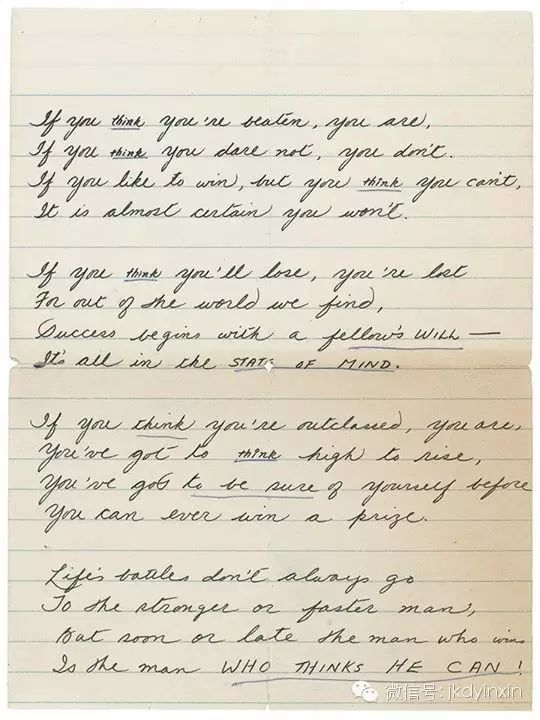 If you think you're beaten, you are,
If you think you dare not, you don't.
If you like to win, but you think you can't,
It is almost certain you won't.
If you think you'll lose, you're lost
For out of the world we find,
Success begins with a fellow's WILL —
It's all in the STATE OF MIND.
If you think you're outclassed, you are,
You've got to think high to rise,
You've got to be sure of yourself before
You can ever win a prize.
Life's battles don't always go
To the stronger or faster man,
But soon or late the man who wins
Is the man WHO THINKS HE CAN!
微信号: jkdyinxin